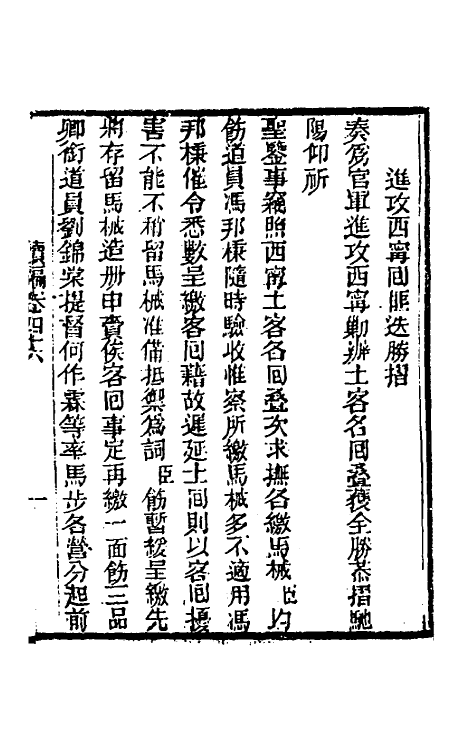 進攻西寧回匪迭勝摺
奏爲官軍進攻西寧勦辦土客各回疊獲全勝恭摺馳
陽仰祈
聖鑒事竊照西寧土客各回疊次求撫各繳馬械臣均
飭道員馮邦棅隨時驗收惟察所繳馬械多不適用馮
邦棅催令悉數呈繳客回藉故遲延土回則以客回擾
害不能不稍留馬械准備抵禦爲詞臣飭暫緩呈繳先
將存留馬械造册申賫俟客回事定再繳一面飭三品
卿銜道員劉錦棠提督何作霖等率馬步各營分起前
續編卷四十六
一